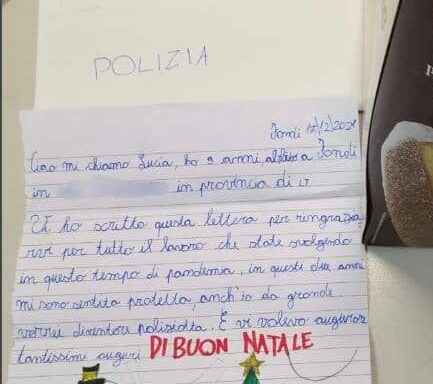 POLIZIA
Fondi 17/12/2021
Ciao mi chiamo Lucia, ho 9 anni, abito a Fondi
in in provincia di LT
Vi ho scritto questa lettera per ringrazia
rvi per tutto il lavoro che state svolgendo
in questo tempo di pandemia, in questi due anni
mi sono sentita protetta, anch'io da grande
vorrei diventare poliziotta. E vi volevo augurare
tantissimi auguri DI BUON NATALE